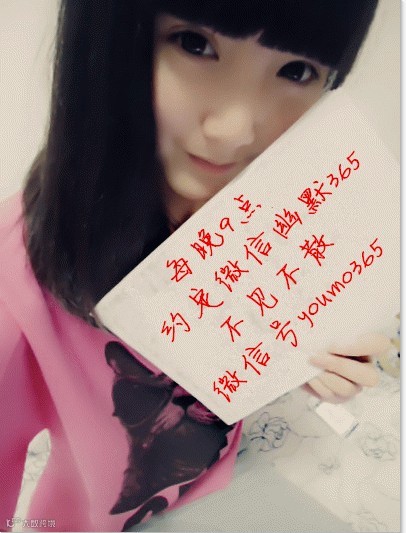 每晚9点
约定微信幽默365
不见不散
微信号youmo365
大数跨境